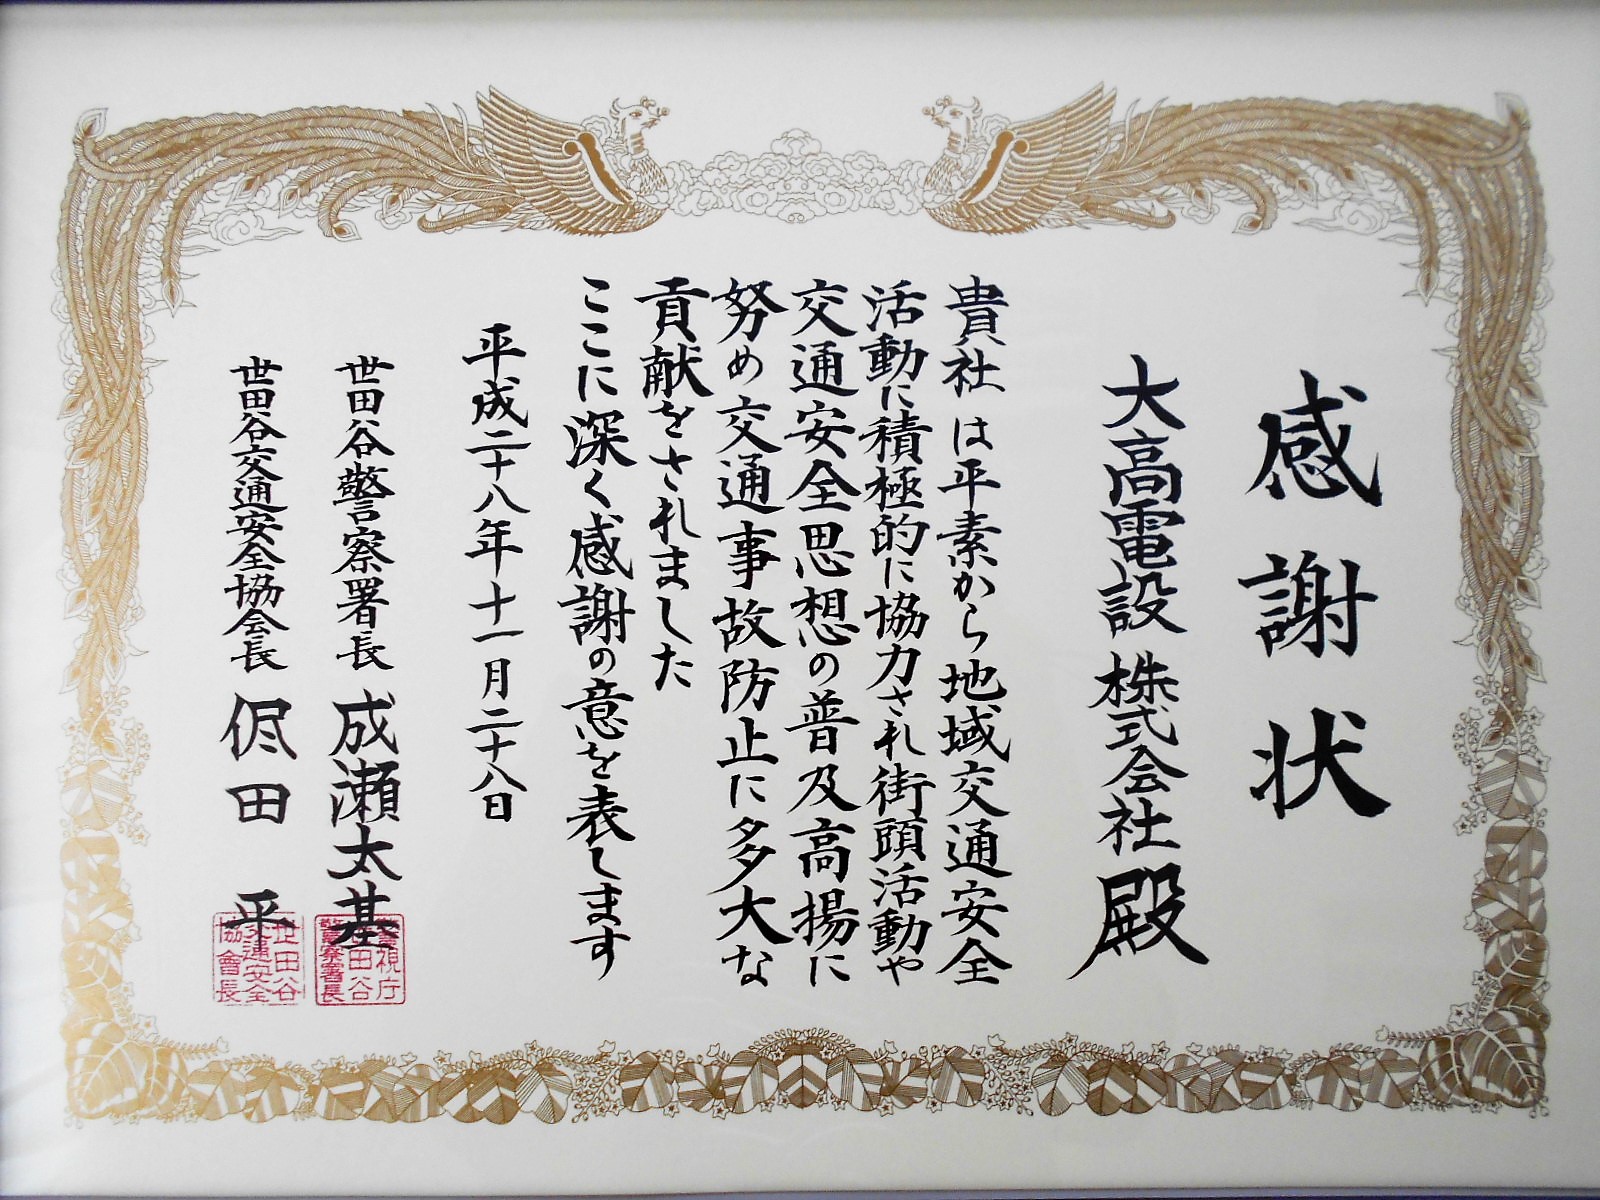 感謝状
大高電設株式会社殿
貴社は平素から地域交通安全
活動に積極的に協力され街頭活動や
交通安全思想の普及高揚に
努め交通事故防止に多大な
貢献をされました
ここに深く感謝の意を表します
平成二十八年十一月二十八日
世田谷警察署長 成瀬太基
警視庁
世田谷
警察署長
世田谷交通安全協会長 侭田平
世田谷
交通安全
協會長